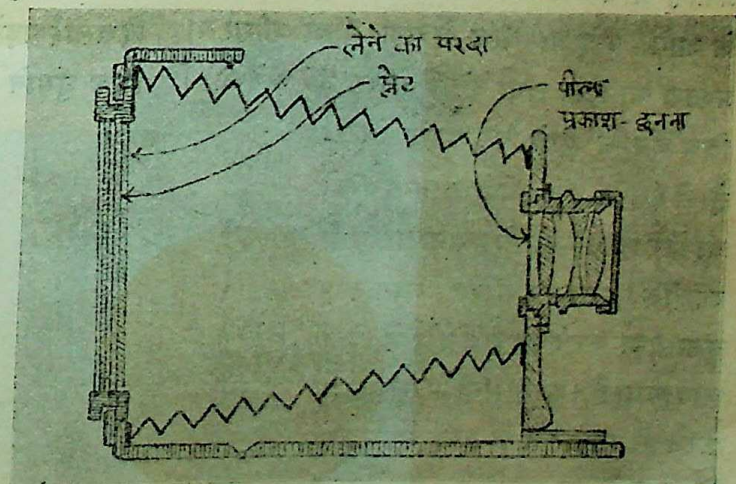 लेने का परदा
प्लेट
पीला
प्रकाश-छनना